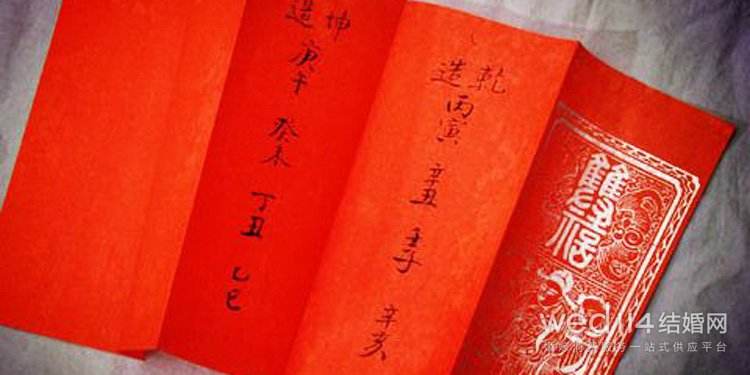 乾造 丙寅 辛丑 壬子 辛亥
坤造 庚午 癸未 丁丑 乙巳
wed114结婚网
一站式供应平台